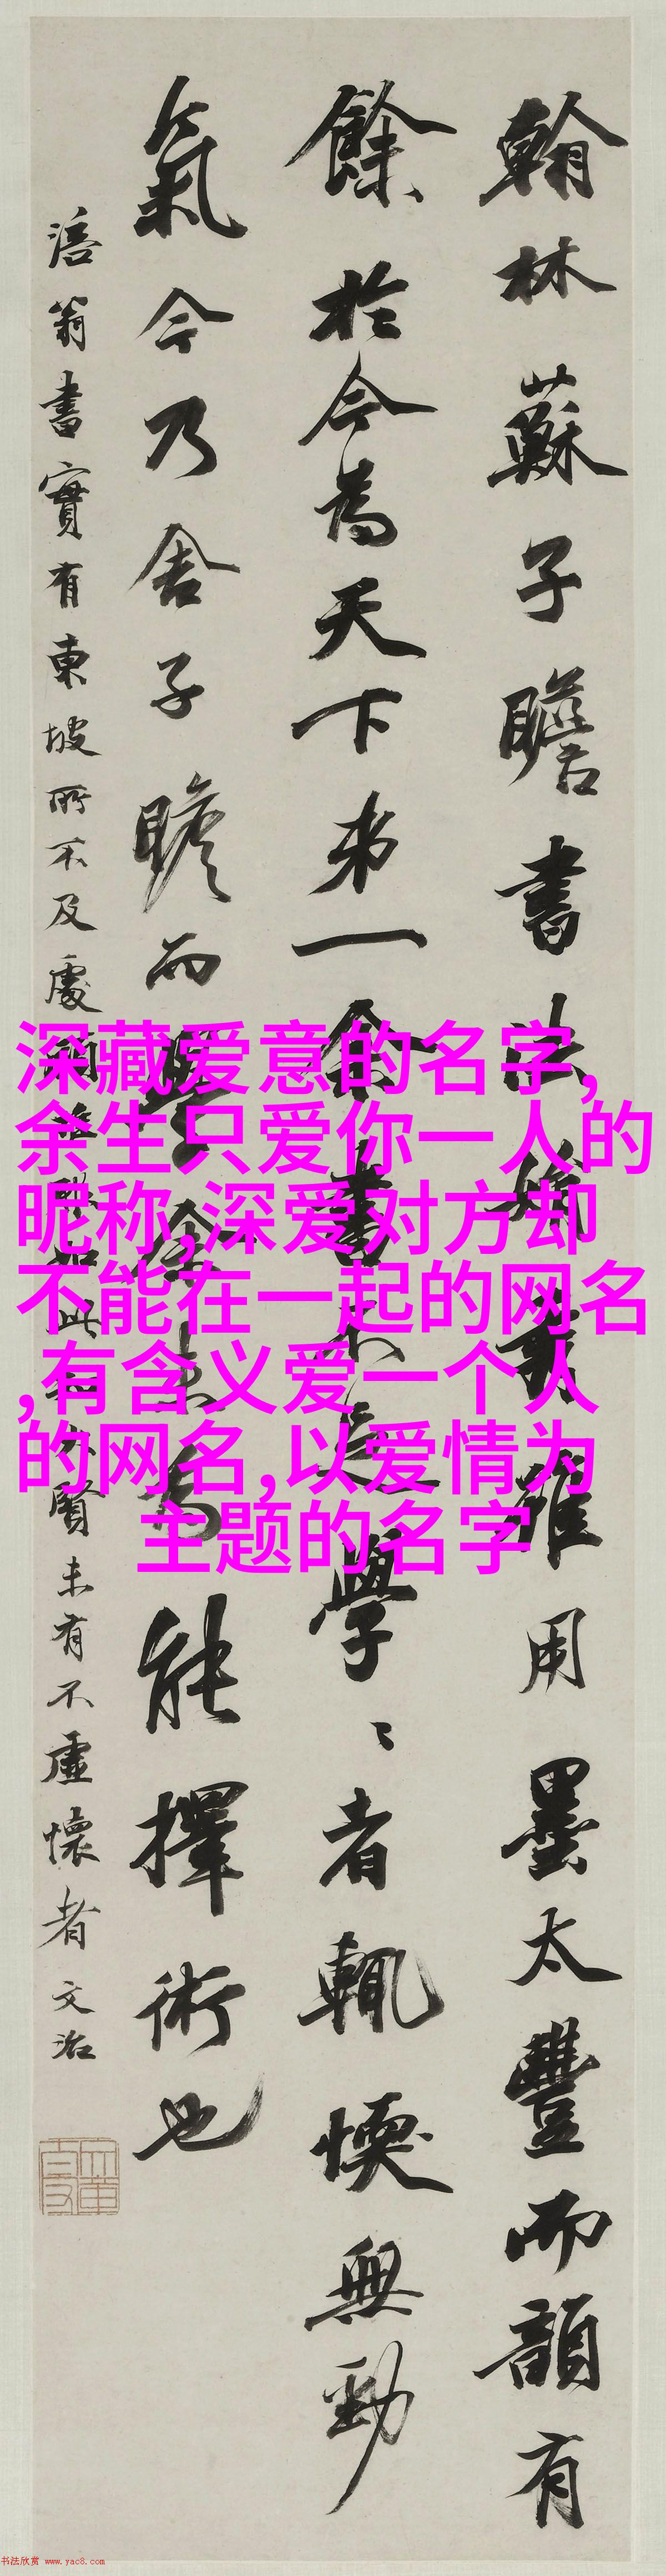 翰林蘇子瞻書法娟秀雖用墨太豐而韻有
餘於今為天下第一余書不足學學者輒愞無勁
氣今乃舍子瞻而學余未為能擇術也
涪翁書實有東坡所不及處如此賢未有不虛懷者文治
深藏爱意的名字,
余生只爱你一人的
昵称,深爱对方却
不能在一起的网名
,有含义爱一个人
的网名,以爱情为
主题的名字
书法欣赏 www.yac8.com